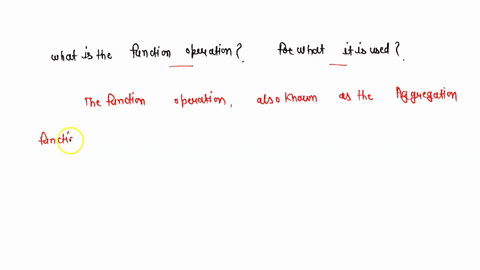 what is the function operation? for what it is used?
The function operation, also known as the Aggregation
functi